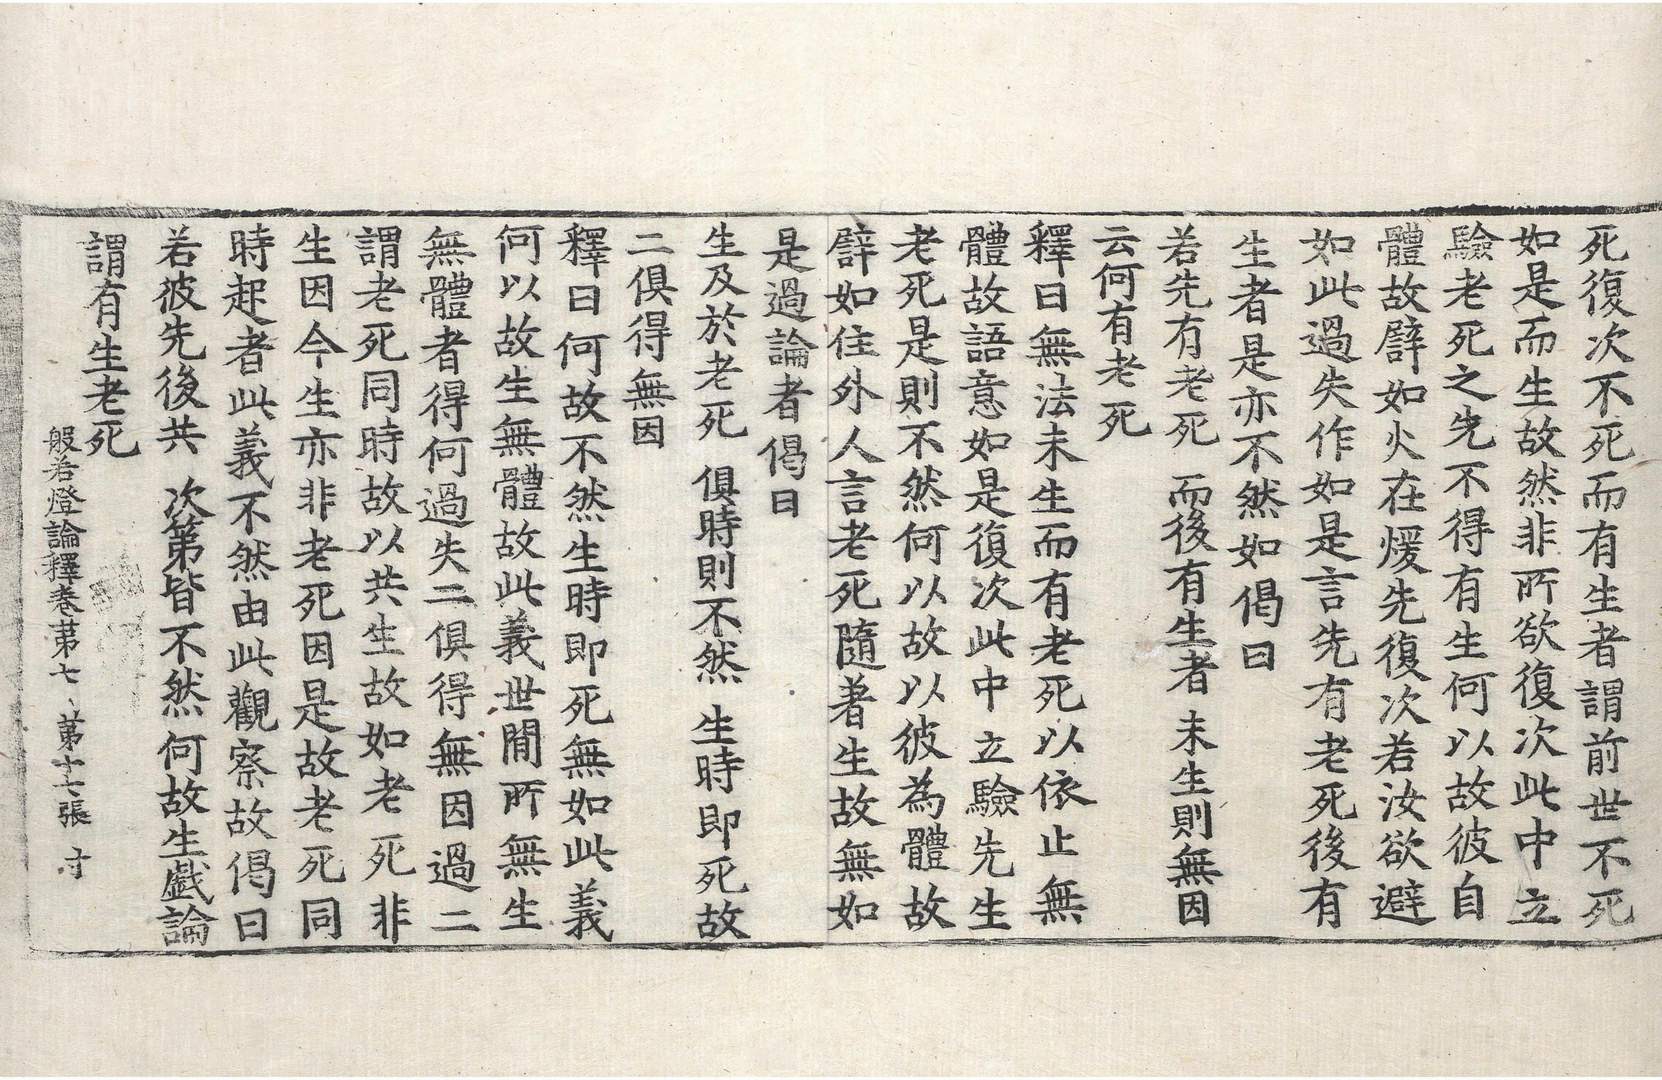 死復次不死而有生者謂前世不死
如是而生故然非所欲復次此中立
驗老死之先不得有生何以故彼自
體故譬如火在煖先復次若汝欲避
如此過失作如是言先有老死後有
生者是亦不然如偈曰
若先有老死 而後有生者 未生則無因
云何有老死
釋曰無法未生而有老死以依止無
體故語意如是復次此中立驗先生
老死是則不然何以故以彼為體故
譬如住外人言老死隨著生故無如
是過論者偈曰
生及於老死 俱時則不然 生時即死故
二俱得無因
釋曰何故不然生時即死無如此義
何以故生無體故此義世間所無生
無體者得何過失二俱得無因過二
謂老死同時故以共生故如老死非
生因今生亦非老死因是故老死同
時起者此義不然由此觀察故偈曰
若彼先後共 次第皆不然 何故生戲論
謂有生老死
般若燈論釋卷苐七 苐十七張 寸